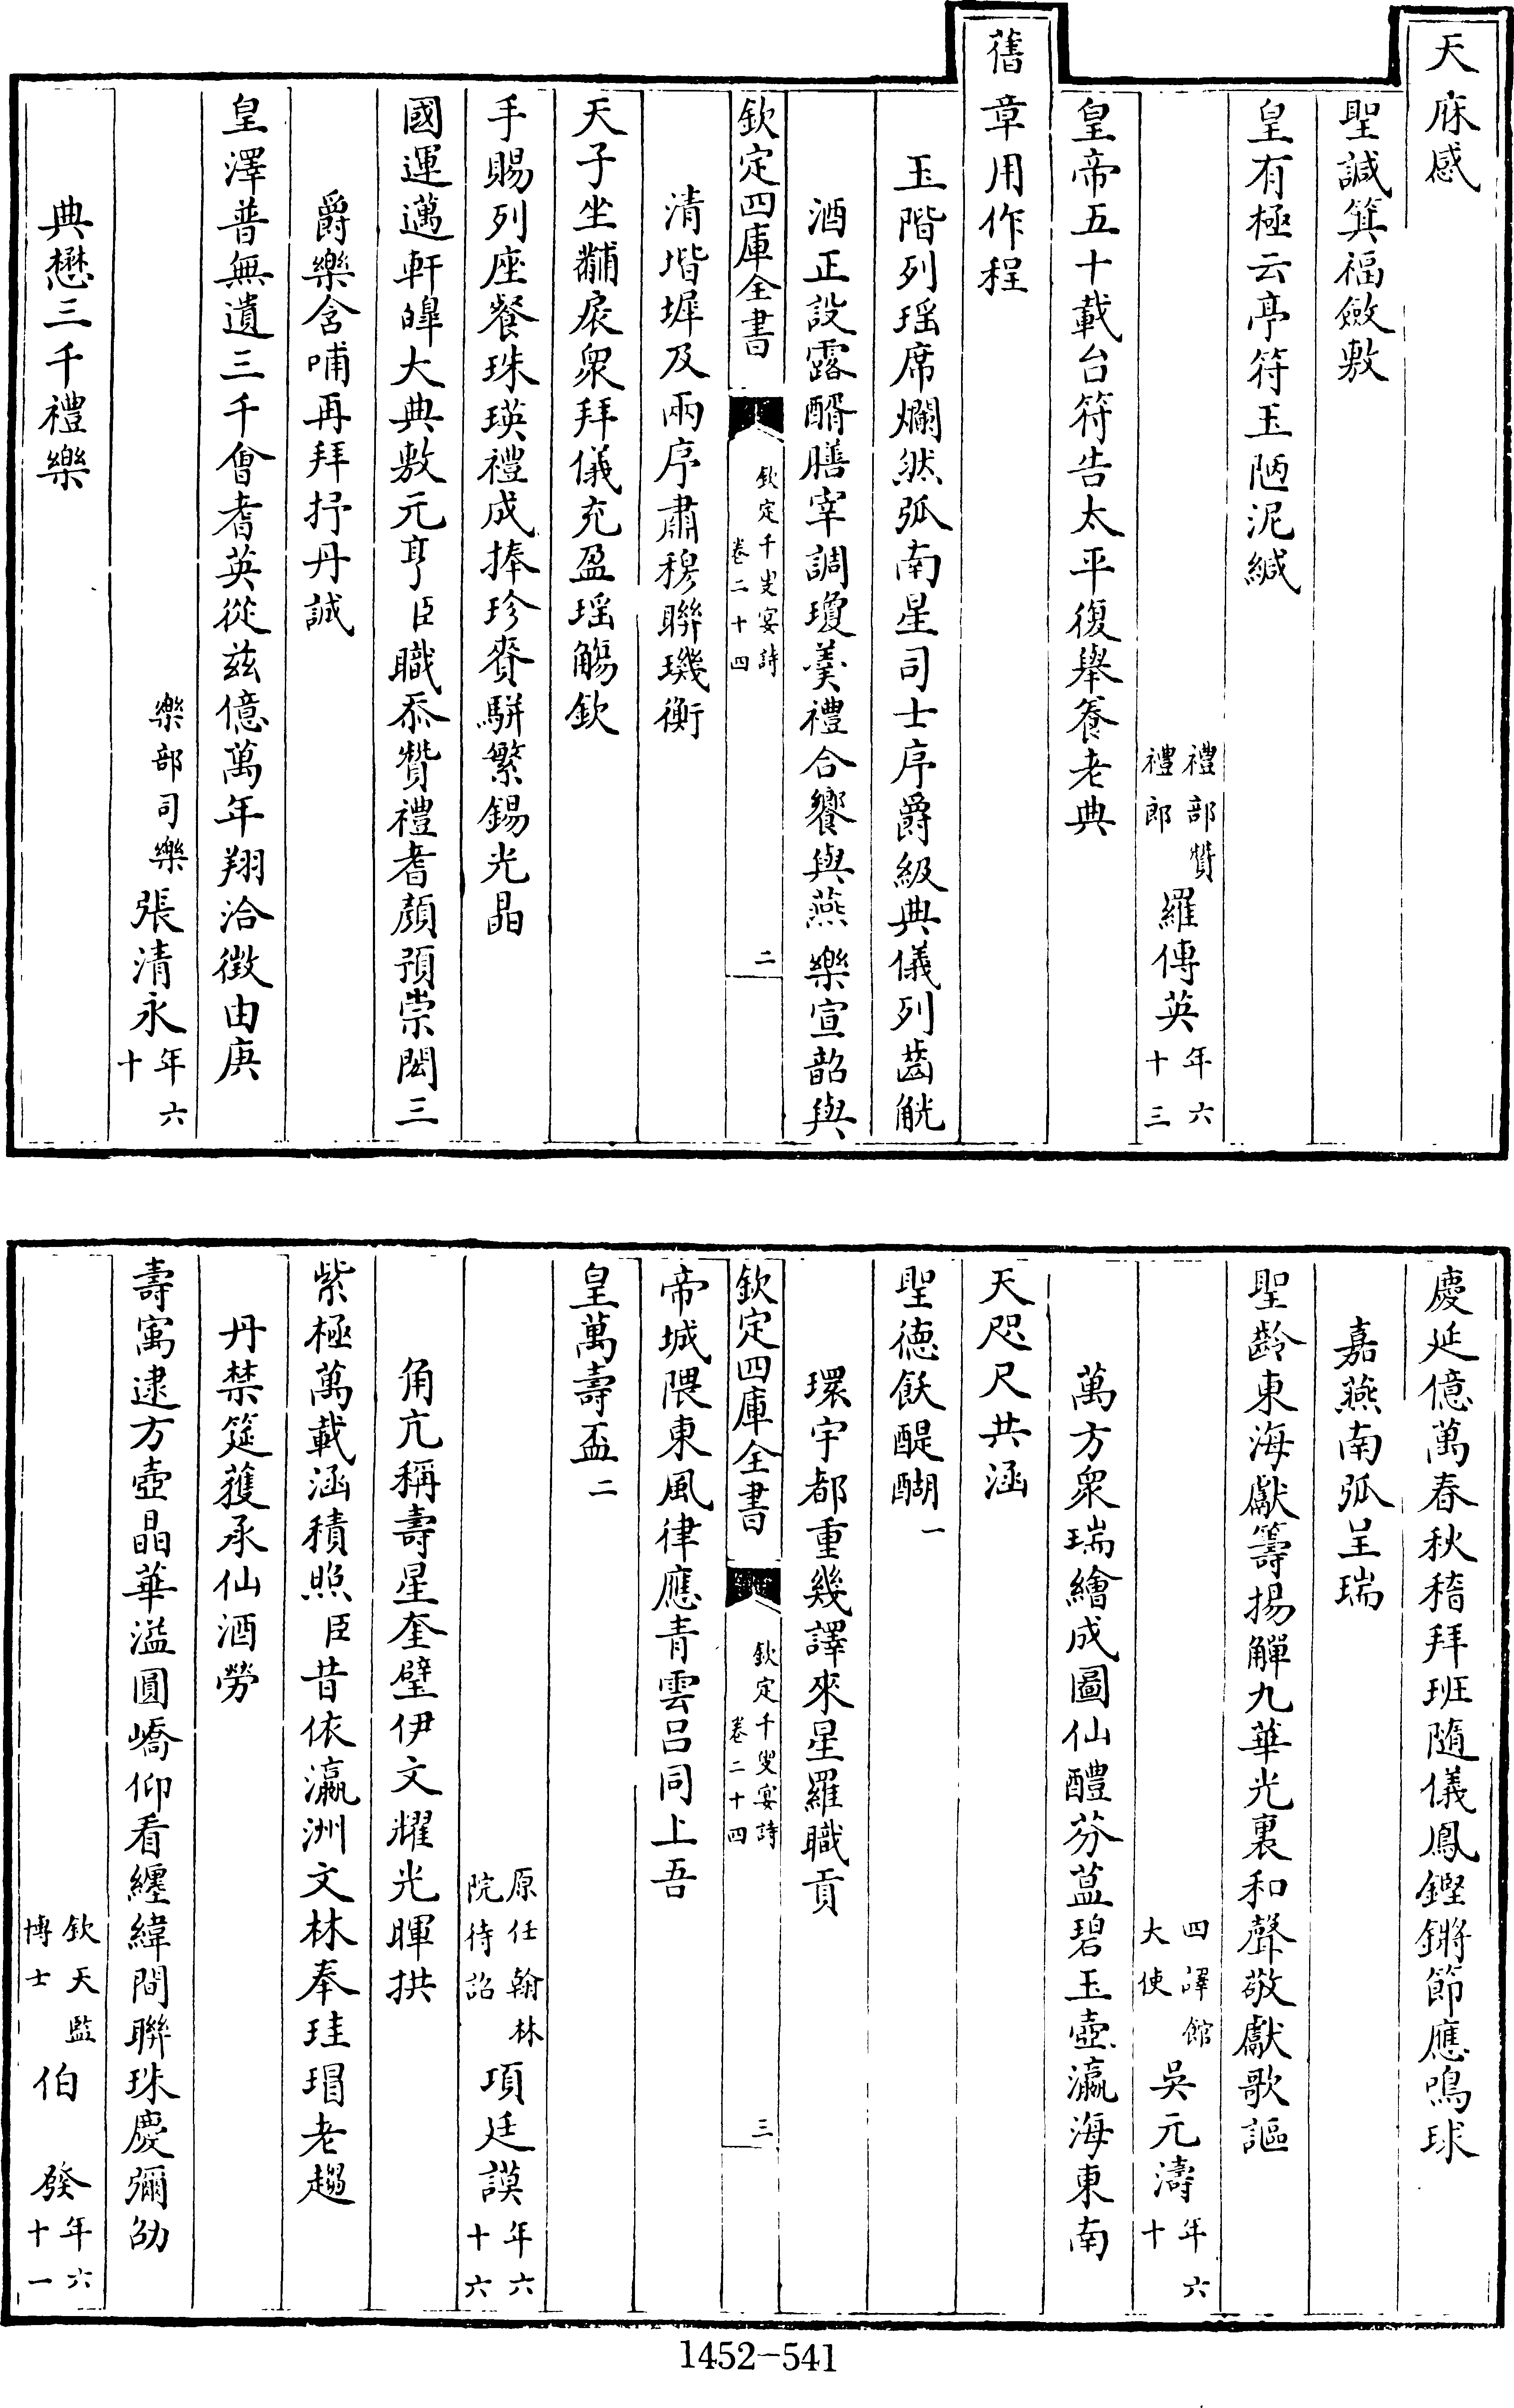 天庥感
聖諴箕福斂敷
皇有極云亭符玉陋泥緘
禮部贊禮郎羅傳英年六十三
皇帝五十載台符告太平復舉養老典
舊章用作程
玉階列瑶席爛然弧南星司士序爵級典儀列齒觥
酒正設露醑膳宰調瓊羹禮合饗與燕樂宣韶與
欽定四庫全書
欽定千叟宴詩
卷二十四
二
清堦墀及兩序肅穆聯璣衡
天子坐黼扆衆拜儀充盈瑶觴欽
手賜列座餐珠瑛禮成捧珍賚駢繁錫光晶
國運邁軒皥大典敷元亨臣職忝贊禮耆顏預崇閎三
爵樂含哺再拜抒丹誠
皇澤普無遺三千會耆英從兹億萬年翔洽徵由庚
樂部司樂張清永年六十
典懋三千禮樂
慶延億萬春秋稽拜班隨儀鳳鏗鏘節應鳴球
嘉燕南弧呈瑞
聖齡東海獻籌揚觶九華光裏和聲敬獻歌謳
四譯館大使吳元濤年六十
萬方衆瑞繪成圖仙醴芬葐碧玉壺瀛海東南
天咫尺共涵
聖德飫醍醐一
環宇都重幾譯來星羅職貢
欽定四庫全書
欽定千叟宴詩
卷二十四
三
帝城隈東風律應青雲呂同上吾
皇萬壽盃二
原任翰林院待詔項廷謨年六十六
角亢稱壽星奎壁伊文燿光暉拱
紫極萬載涵積照臣昔依瀛洲文林奉珪瑁老趨
丹禁筵獲承仙酒勞
壽寓逮方壺晶華溢圓嶠仰看纒緯間聯珠慶彌劭
欽天監博士伯發年六十一
1452-541